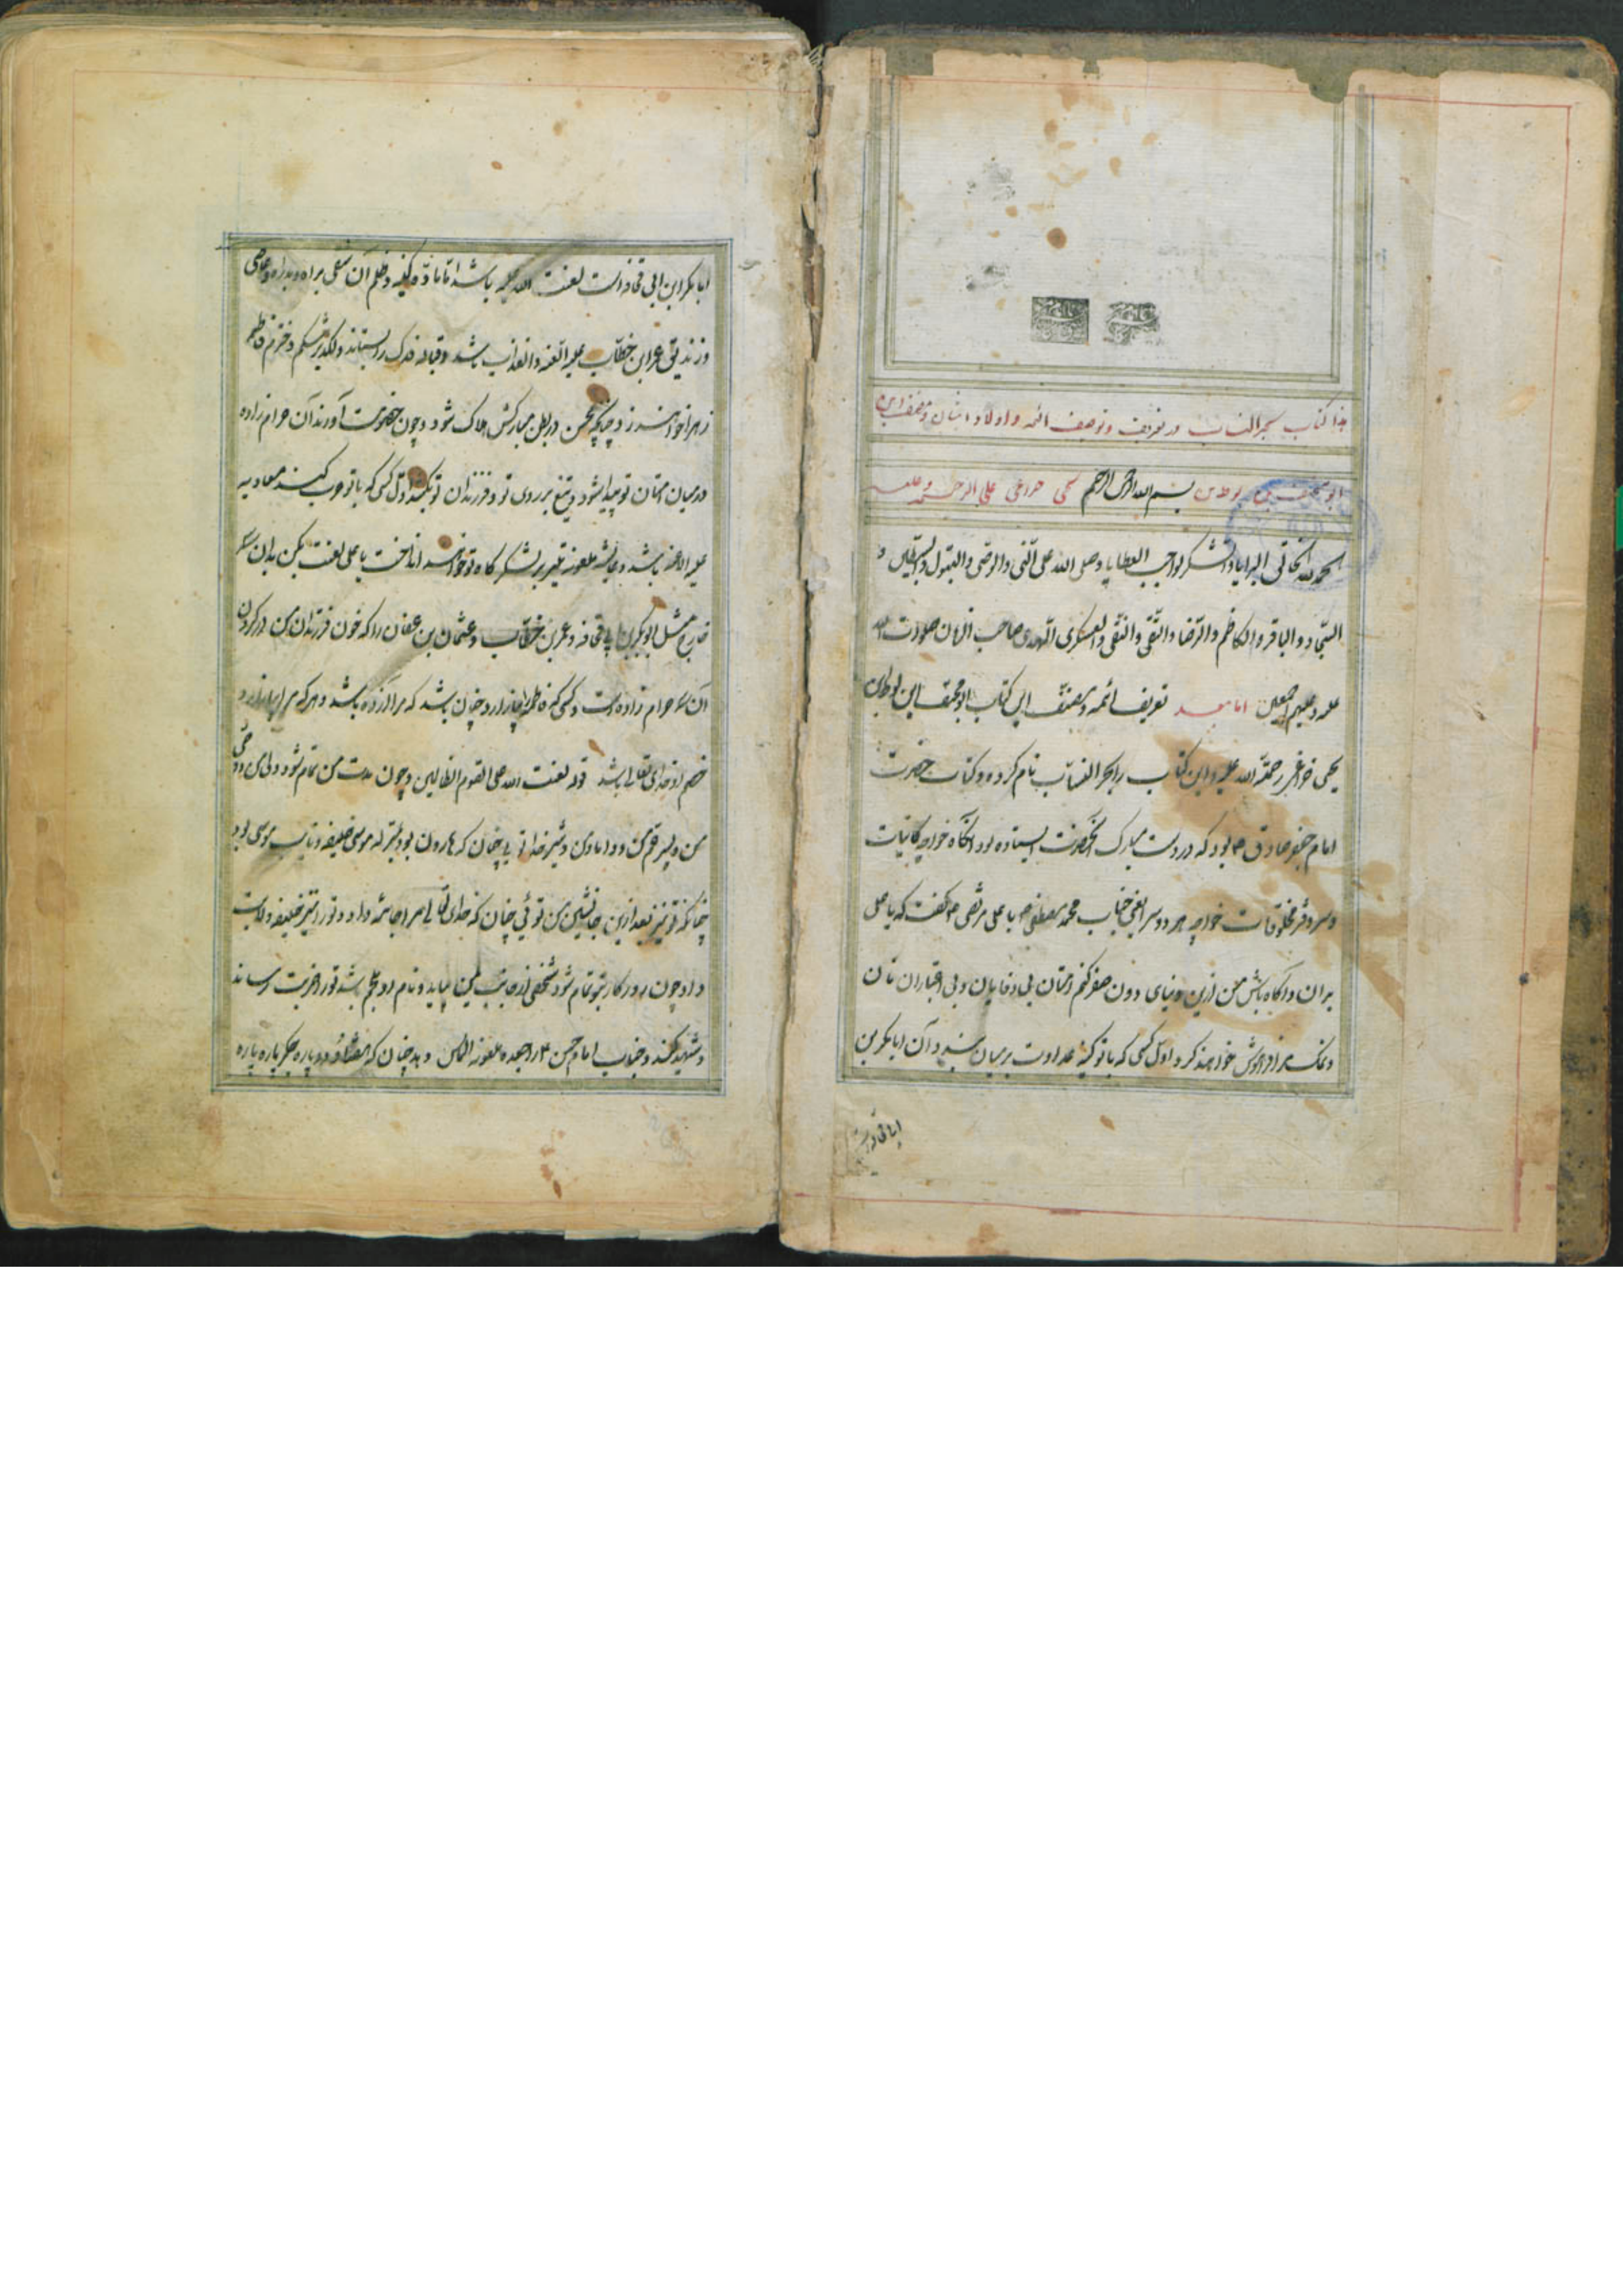 هذا کتاب بحر النساب در تعریف و توصیف ائمه و اولاد ایشان و مصنف این
ابو مخنف بن لوط بن بسم الله الرحمن الرحیم یحیی خزاعی علیه الرحمه
الحمد لله الخالق البرایا والشکر لواجب العطایا وصلی الله علی النبی والوصی والبتول والسبطین و
السجاد والباقر والکاظم والرضا والتقی والنقی والعسکری المهدی صاحب الزمان صلوات الله
علیه وعلیهم اجمعین اما بعد تعریف ائمه و مصنف این کتاب ابو مخنف ابن لوط بن
یحیی خزاعی رحمة الله علیه و این کتاب را بحر النساب نام کرده و کتاب حضرت
امام جعفر صادق ع بود که در دست مبارک آنحضرت ایستاده بود آنگاه خواجه کاینات
و سرور مخلوقات خواجه هر دو سرا یعنی جناب محمد مصطفی ص با علی مرتضی ع گفت که یا علی
بدان و آگاه باش من ازین دنیای دون سفر کنم امتان بی وفایان و بی اعتباران نان
و نمک مرا فراموش خواهند کرد اول کسی که با تو کینه عداوت بر میان بندد آن ابابکر بن
ابی قحافه
ابابکر ابن ابی قحافه است لعنت الله علیه باشد تا ماده کینه و ظلم آن شقی بر راه و بدراه و عاصی
و زندیق عمر ابن خطاب علیه اللعنه والعذاب باشد و قباله فدک را بستاند و لگد بر شکم دخترم فاطمه
زهرا خواهند زد چنانچه محسن در بطن مبارکش هلاک شود و چون خصومت آورند آن حرام زاده
در میان امتان تو پیدا شود و تیغ بر روی تو و فرزندان تو بکشد اول کسی که با تو حرب کند معاویه
علیه اللعنه باشد و عایشه ملعونه تیر بر لشکر گاه تو خواهد انداخت یا علی لعنت بکن بدان سه
خارج مثل ابوبکر بن ابی قحافه و عمر بن خطاب و عثمان بن عفان را که خون فرزندان من در گردن
آن سه حرام زاده است و کسی که فاطمه را بیازارد چنان باشد که مرا آزرده باشد و هر که مرا بیازارد
خصم او خدای تعالی باشد قوله لعنت الله علی القوم الظالمین و چون مدت من تمام شود ولی من و وصی
من و پسر عم من و داماد من و شیر خدا تویی چنان که هارون بود مر موسی خلیفه و نایب موسی بود
چنانکه تو نیز بعد از من جانشین من توئی چنان که خدای تعالی مرا جامه داد و تو را نیز خلیفه ولایت
داد و چون روزگار تو تمام شود شخصی از جانب یمن بیاید و نام او ملجم باشد تو را ضربت رساند
و شهید کند و جناب امام حسن ع را جعده ملعونه الماس دهد چنان که هفتاد و دو پاره جگر پاره پاره